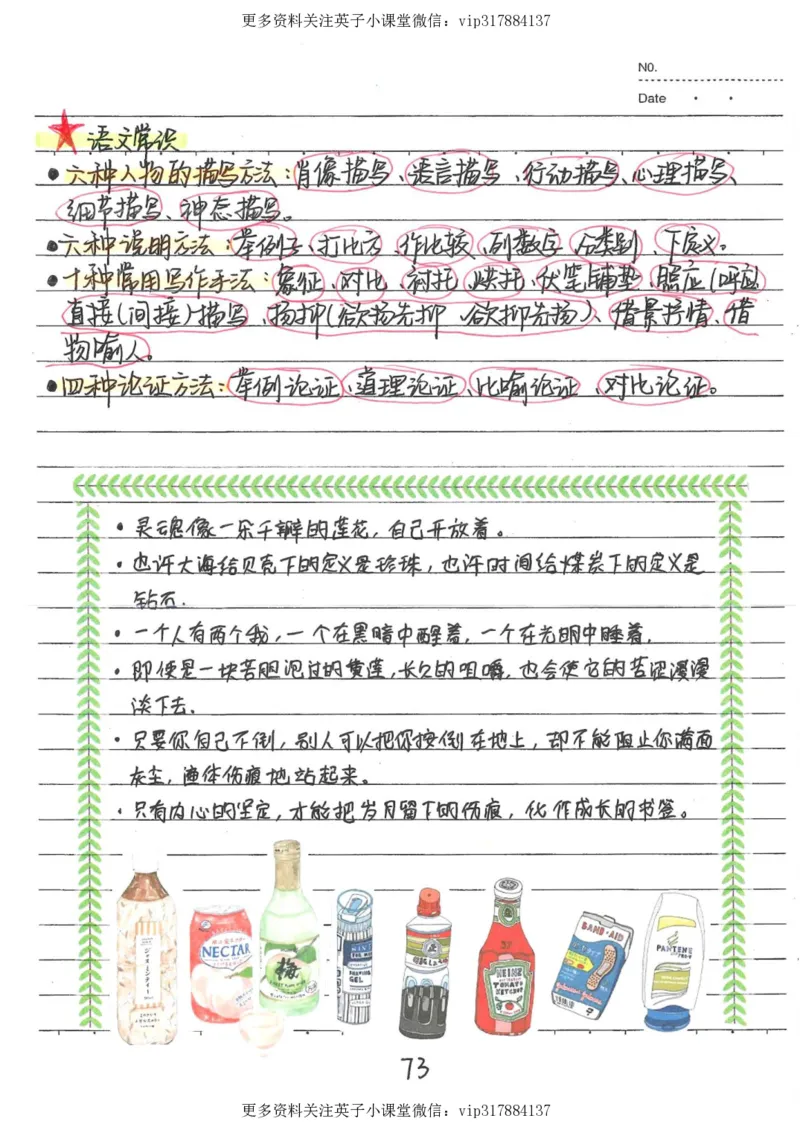 更多资料关注英子小课堂微信：vip317884137
NO.
Date
语文常识
•六种人物的描写方法：肖像描写、语言描写、行动描写、心理描写、
细节描写、神态描写。
•六种说明方法：举例子、打比方、作比较、列数字、分类别、下定义。
•十种常用写作手法：象征、对比、衬托、烘托、伏笔铺垫、照应(呼应
直接(间接)描写、扬抑(欲扬先抑、欲抑先扬)、借景抒情、借
物喻人。
•四种论证方法：举例论证、道理论证、比喻论证、对比论证。
•灵魂像一朵千瓣的莲花，自己开放着。
•也许大海给贝壳下的定义是珍珠，也许时间给煤炭下的定义是
钻石.
•一个人有两个我，一个在黑暗中醒着，一个在光明中睡着.
•即便是一块苦胆泡过的黄莲，长久的咀嚼，也会使它的苦涩漫漫
淡下去.
•只要你自己不倒，别人可以把你按倒在地上，却不能阻止你满面
灰尘，遍体伤痕地站起来。
•只有内心的坚定，才能把岁月留下的伤痕，化作成长的书签。
NECTAR
梅
GEL
37
HEINZ
TOMATO
KETCHUP
BAND-AID
Johnson & Johnson
PANTENE
73
更多资料关注英子小课堂微信：vip317884137